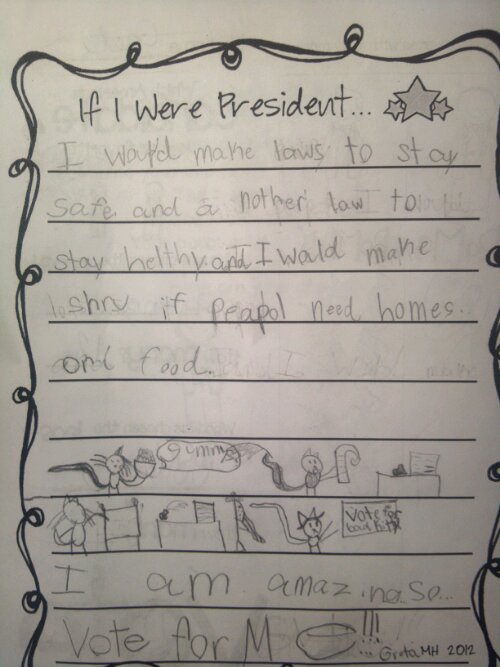 If I Were President...
I would make laws to stay
safe and a nother law to
stay helthy. and I wald make
shrv if peapol need homes.
and food.
Gummy
Vote for
I am amazing so...
Vote for M !!!
Greta MH 2012